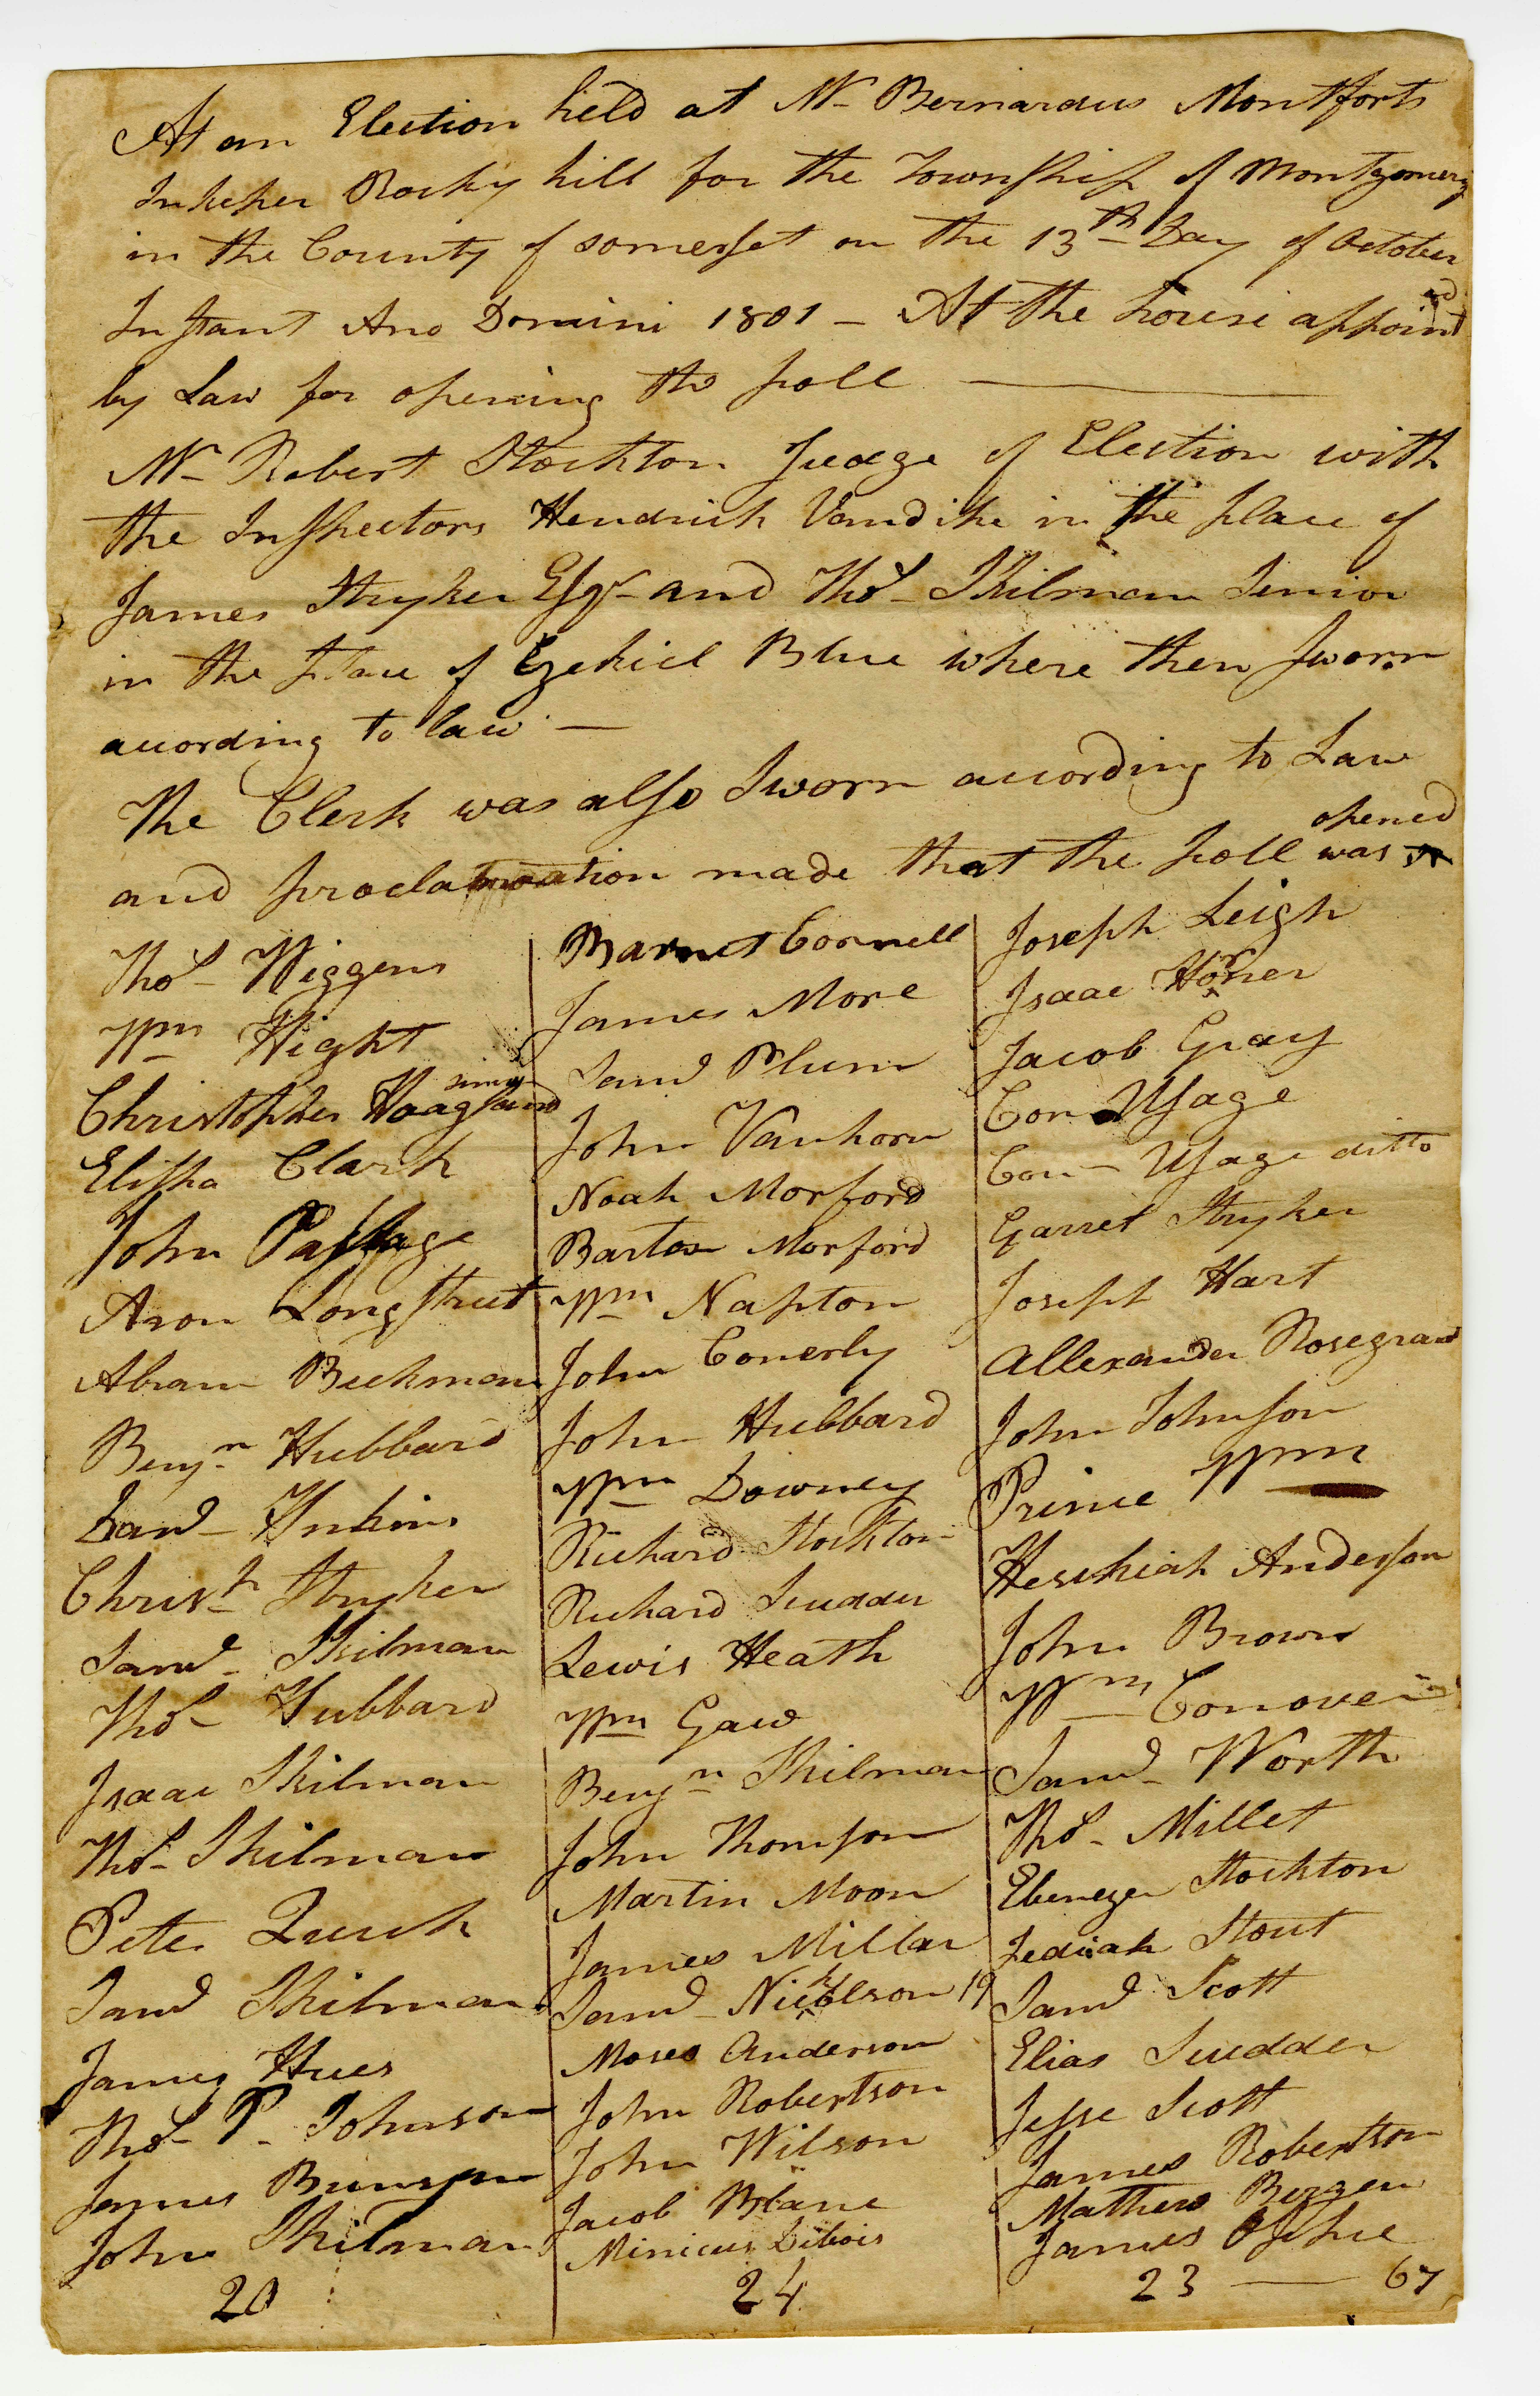 At an Election held at Mr Bernardus Montforts
Inkeper Rocky hill for the Township of Montgomery
in the County of somerset on the 13th Day of October
Instant Ano Domini 1801 — At the house appointed
by Law for opening the poll —
Mr Robert Stockton Judge of Election with
the Inspectors Hendrick Vandike in the place of
James Stryker Esqr and Thos Skilman Senior
in the place of Ezekiel Blue where then sworn
acording to law —
The Clerk was also Sworn according to Law
opened
and proclamation made that the poll was
Thos Wiggens
Wm Hight
Christopher Hoagland
Elisha Clark
John Passage
Aron Longstreet
Abram Beekman
Benjn Hubbard
Christr Stryker
Saml Skilman
Thos Hubbard
Isaac Skilman
Thos Skilman
Peter Quick
Saml Skilman
James Hues
Thos P. Johnson
James Brunson
John Skilman
20
Barnet Cornell
James More
Saml Plum
John Vanhorn
Noah Morford
Barton Morford
Wm Napton
John Conerly
John Hubbard
Wm Downey
Richard Stockton
Richard Scudder
Lewis Heath
Wm Gaw
Benjn Skilman
John Thomson
Martin Moon
James Millar
Saml Nicholson 19
Moses Anderson
John Robertson
John Wilson
Jacob Blane
Minicus Dibois
24
Joseph Leigh
Isaac Horner
Jacob Gray
Cor Usage
Con Usage ditto
Garret Stryker
Joseph Hart
Allexander Rosegrand
John Johnson
Prince Wm
Hesekiah Anderson
John Brown
Wm Conover
Saml Worth
Thos Millet
Ebenezer Stockton
Jediah Stout
Saml Scott
Elias Scudder
Jesse Scott
James Robertson
Mathew Bergen
James
23 — 67